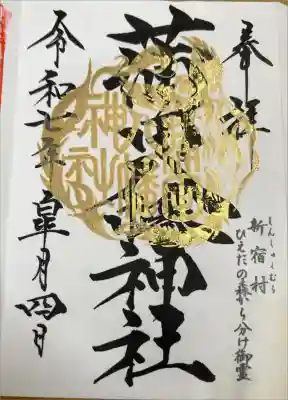 奉拝
しんしゅくむら
新宿村
ひえだの森から分け御霊
蒲田八幡神社
令和七年 皐月四日